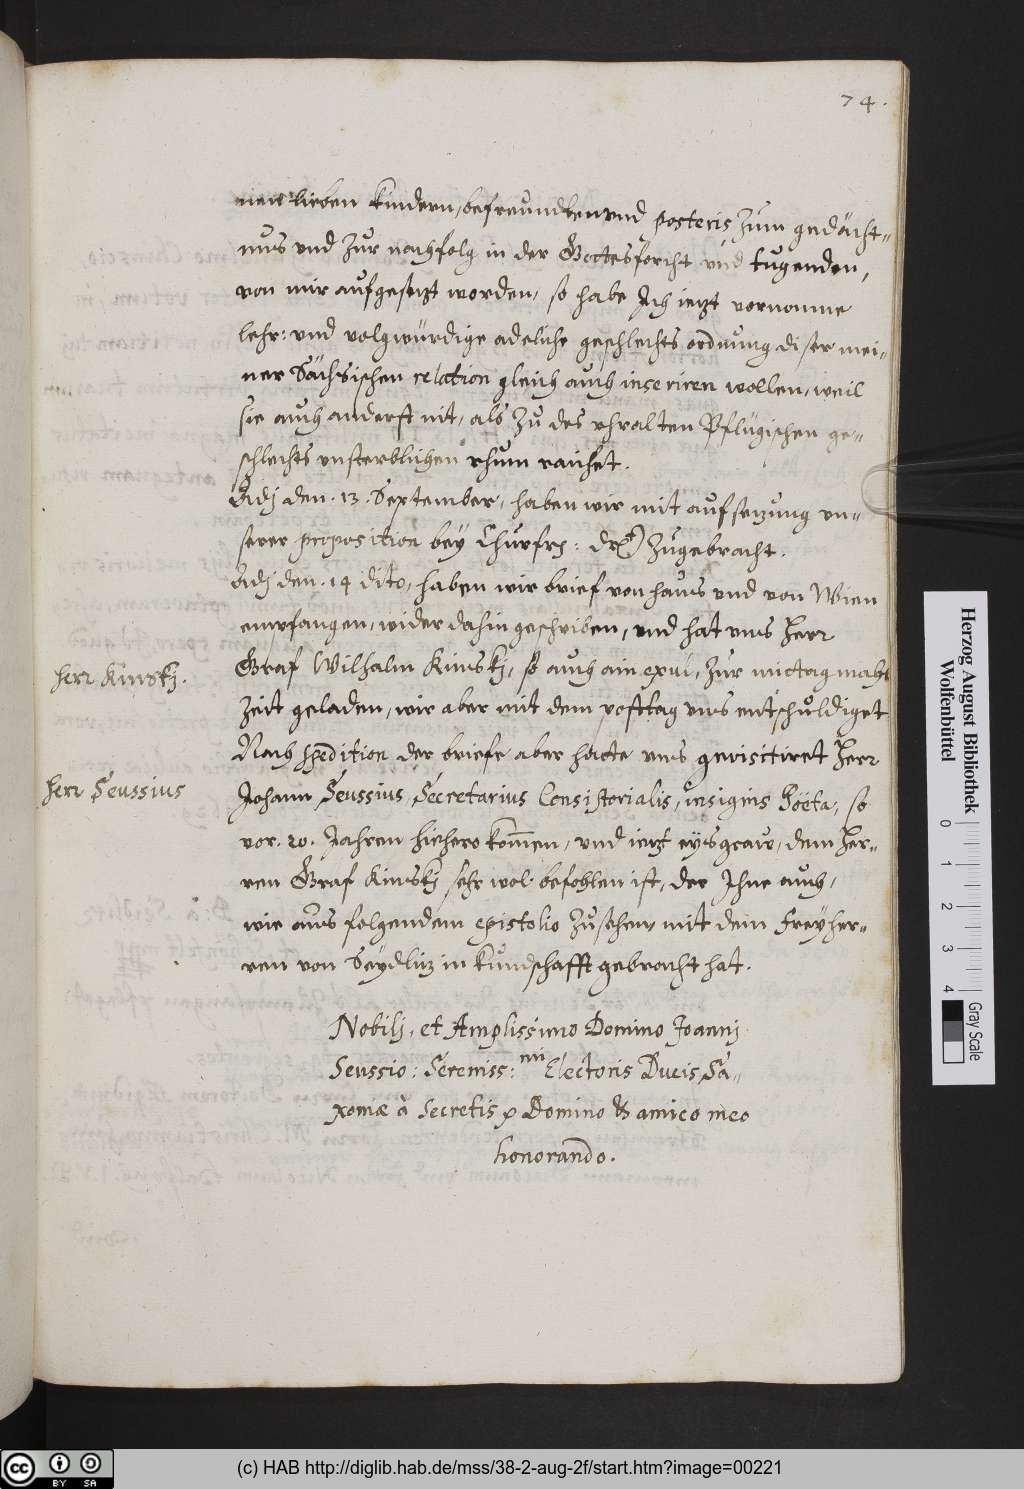 74.
nen lieben kindern, befreundten vnd posteris zum gedächt-
nus vnd zur nachfolg in der Gottesforcht vnd tugenden,
von mir aufgesezt worden, so habe Ich iezt vernomne
lehr: vnd volgwürdige adeliche geschlechts ordnung diser mei-
ner Sächsischen relation gleich auch inseriren wollen, weil
sie auch anderst nit, als zu des vhralten Pflügischen ge-
schlechts vnsterblichen rhum raichet.
Adj den. 13. September, haben wir mit aufsezung vn-
serer proposition bey Churfrs: drt) zugebracht.
Adj den. 14 dito, haben wir brief von haus vnd von Wien
empfangen, wider dahin geschriben, vnd hat vns Herr
Herr Kinskj.
Graf Wilhalm Kinskj, so auch ain exul, zur mittagmahl
zeit geladen, wir aber mit dem posttag vns entschuldiget
Nach spedition der briefe aber hatte vns gevisitiret Herr
Herr Seussius
Johann Seussius Secretarius Consistorialis, insignis Pöeta, so
vor. 20. Jahren hiehero kommen, vnd iezt eysgraw, dem Her-
ren Graf Kinskj sehr wol befohlen ist, der Ihne auch,
wie aus folgendem epistolio zusehen, mit dem Freyher-
ren von Seydliz in kundschafft gebracht hat.
Nobilj, et Amplissimo Domino Joannj
Seussio: Sereniss: mi Electoris Ducis Sa-
xoniæ à Secretis p Domino & amico meo
honorando.
Herzog August Bibliothek
Wolfenbüttel
0 1 2 3 4
Gray Scale
cc BY SA
(c) HAB http://diglib.hab.de/mss/38-2-aug-2f/start.htm?image=00221